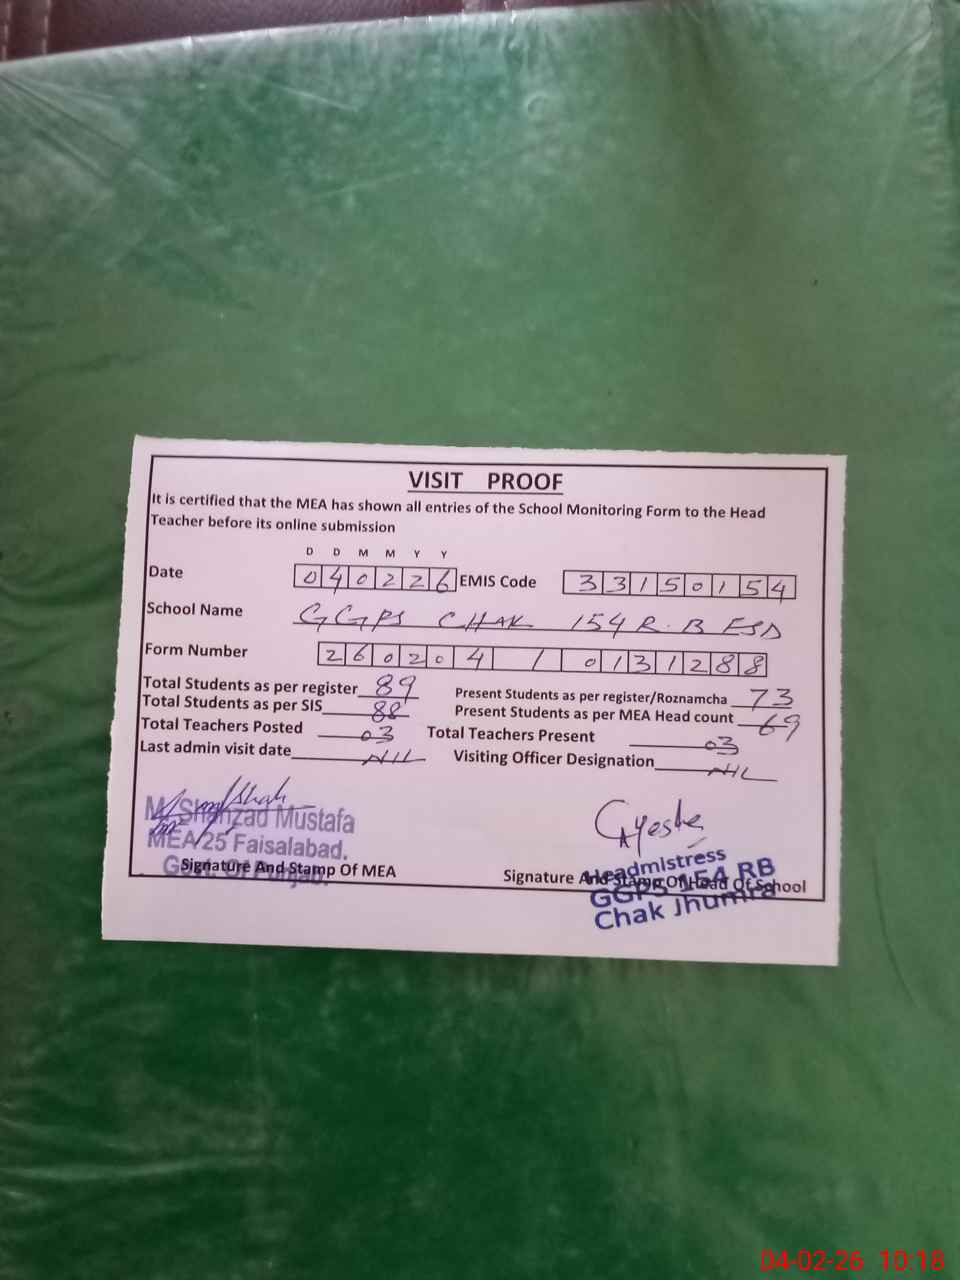 VISIT PROOF
It is certified that the MEA has shown all entries of the School Monitoring Form to the Head
Teacher before its online submission
D D M M Y Y
Date 040226 EMIS Code 33150154
School Name GGPS CHAK 154 R.B FSD
Form Number 260204 / 0131288
Total Students as per register 89 Present Students as per register/Roznamcha 73
Total Students as per SIS 88 Present Students as per MEA Head count 69
Total Teachers Posted 03 Total Teachers Present 03
Last admin visit date NIL Visiting Officer Designation NIL
Shahzad Mustafa
MEA 25 Faisalabad.
Govt. Of Punjab.
Signature And Stamp Of MEA
Ayesha
Headmistress
GGPS 154 RB
Chak Jhumra
Signature And Stamp Of Head Of School
04-02-26 10:18